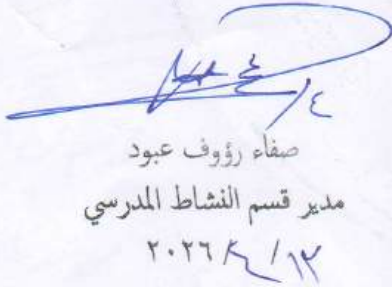 صفاء رؤوف عبود
مدير قسم النشاط المدرسي
٢٠٢٦/٤/١٣